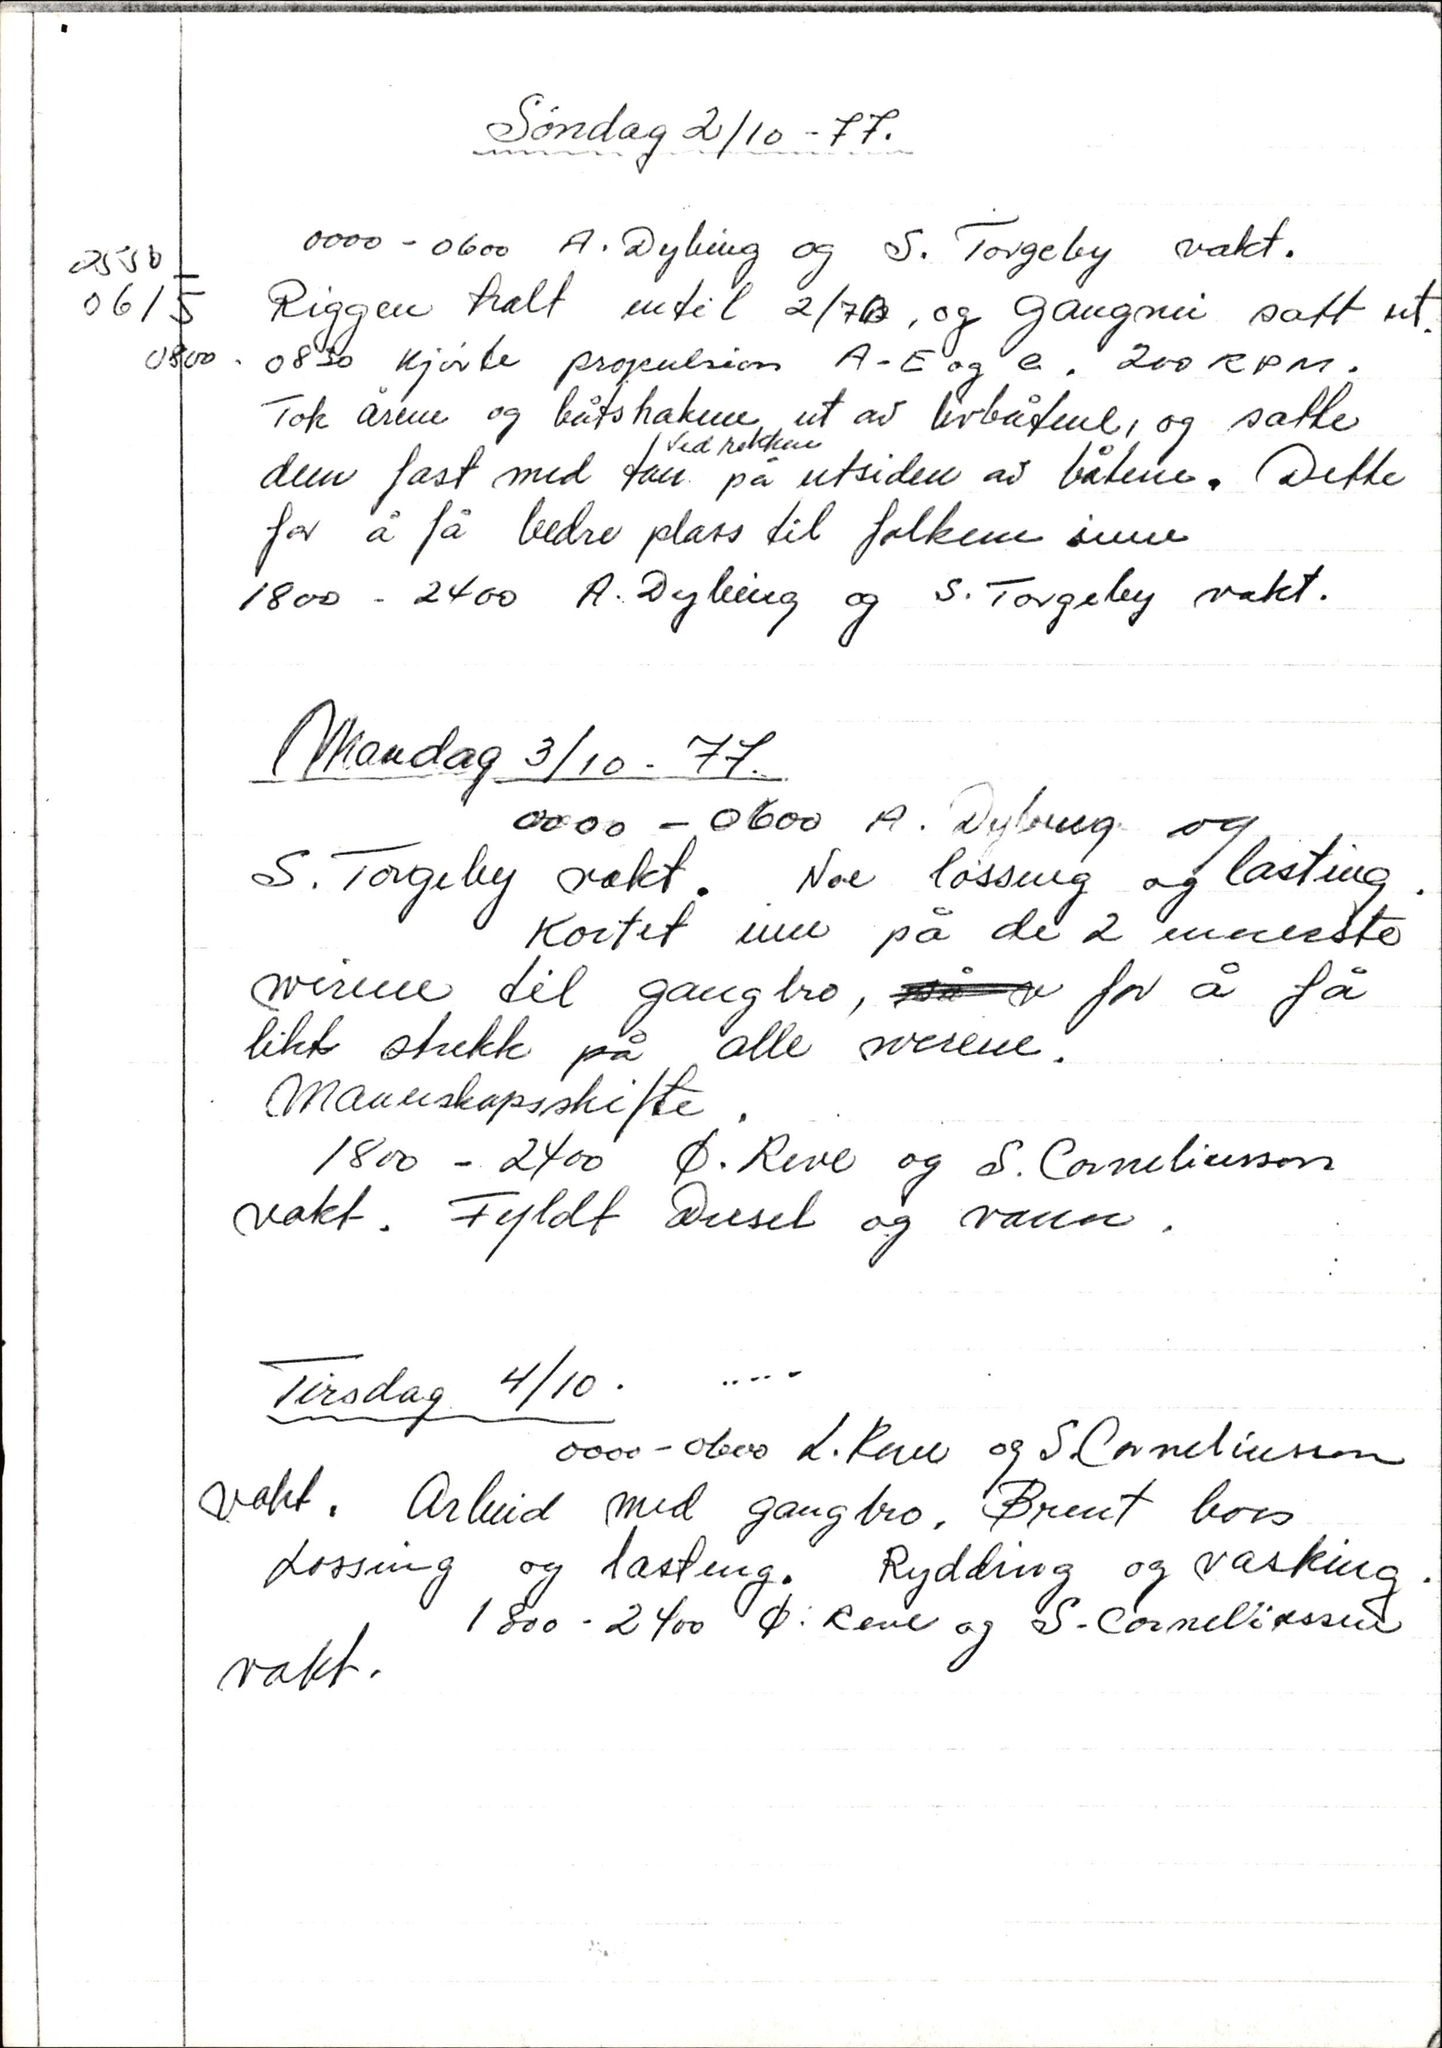 Söndag 2/10 - 77.
0000 - 0600 A. Dybing og S. Torgeby vakt.
0550
0615 Riggen halt intil 2/7B, og Gangvei satt ut.
0800 - 0830 Kjörte propulsion A-E og C. 200 RPM.
Tok årene og båtshakene ut av livbåtene, og satte
ved rekken
dem fast med tau på utsiden av båtene. Dette
for å få bedre plass til folkene inne
1800 - 2400 A. Dybing og S. Torgeby vakt.
Mandag 3/10 - 77.
0000 - 0600 A. Dybing og
S. Torgeby vakt. Noe lossing og lasting.
Kortet inn på de 2 innerste
wirene til gangbro, for å få
likt strekk på alle wirene.
Mannskapsskifte.
1800 - 2400 Ø. Reve og S. Corneliusson
vakt. Fyldt Diesel og vann.
Tirsdag 4/10. .....
0000 - 0600 Reve og S. Corneliusson
vakt. Arbeid med gangbro. Brent boss
Lossing og lasting. Rydding og vasking.
1800 - 2400 Ø. Reve og S. Corneliussen
vakt.